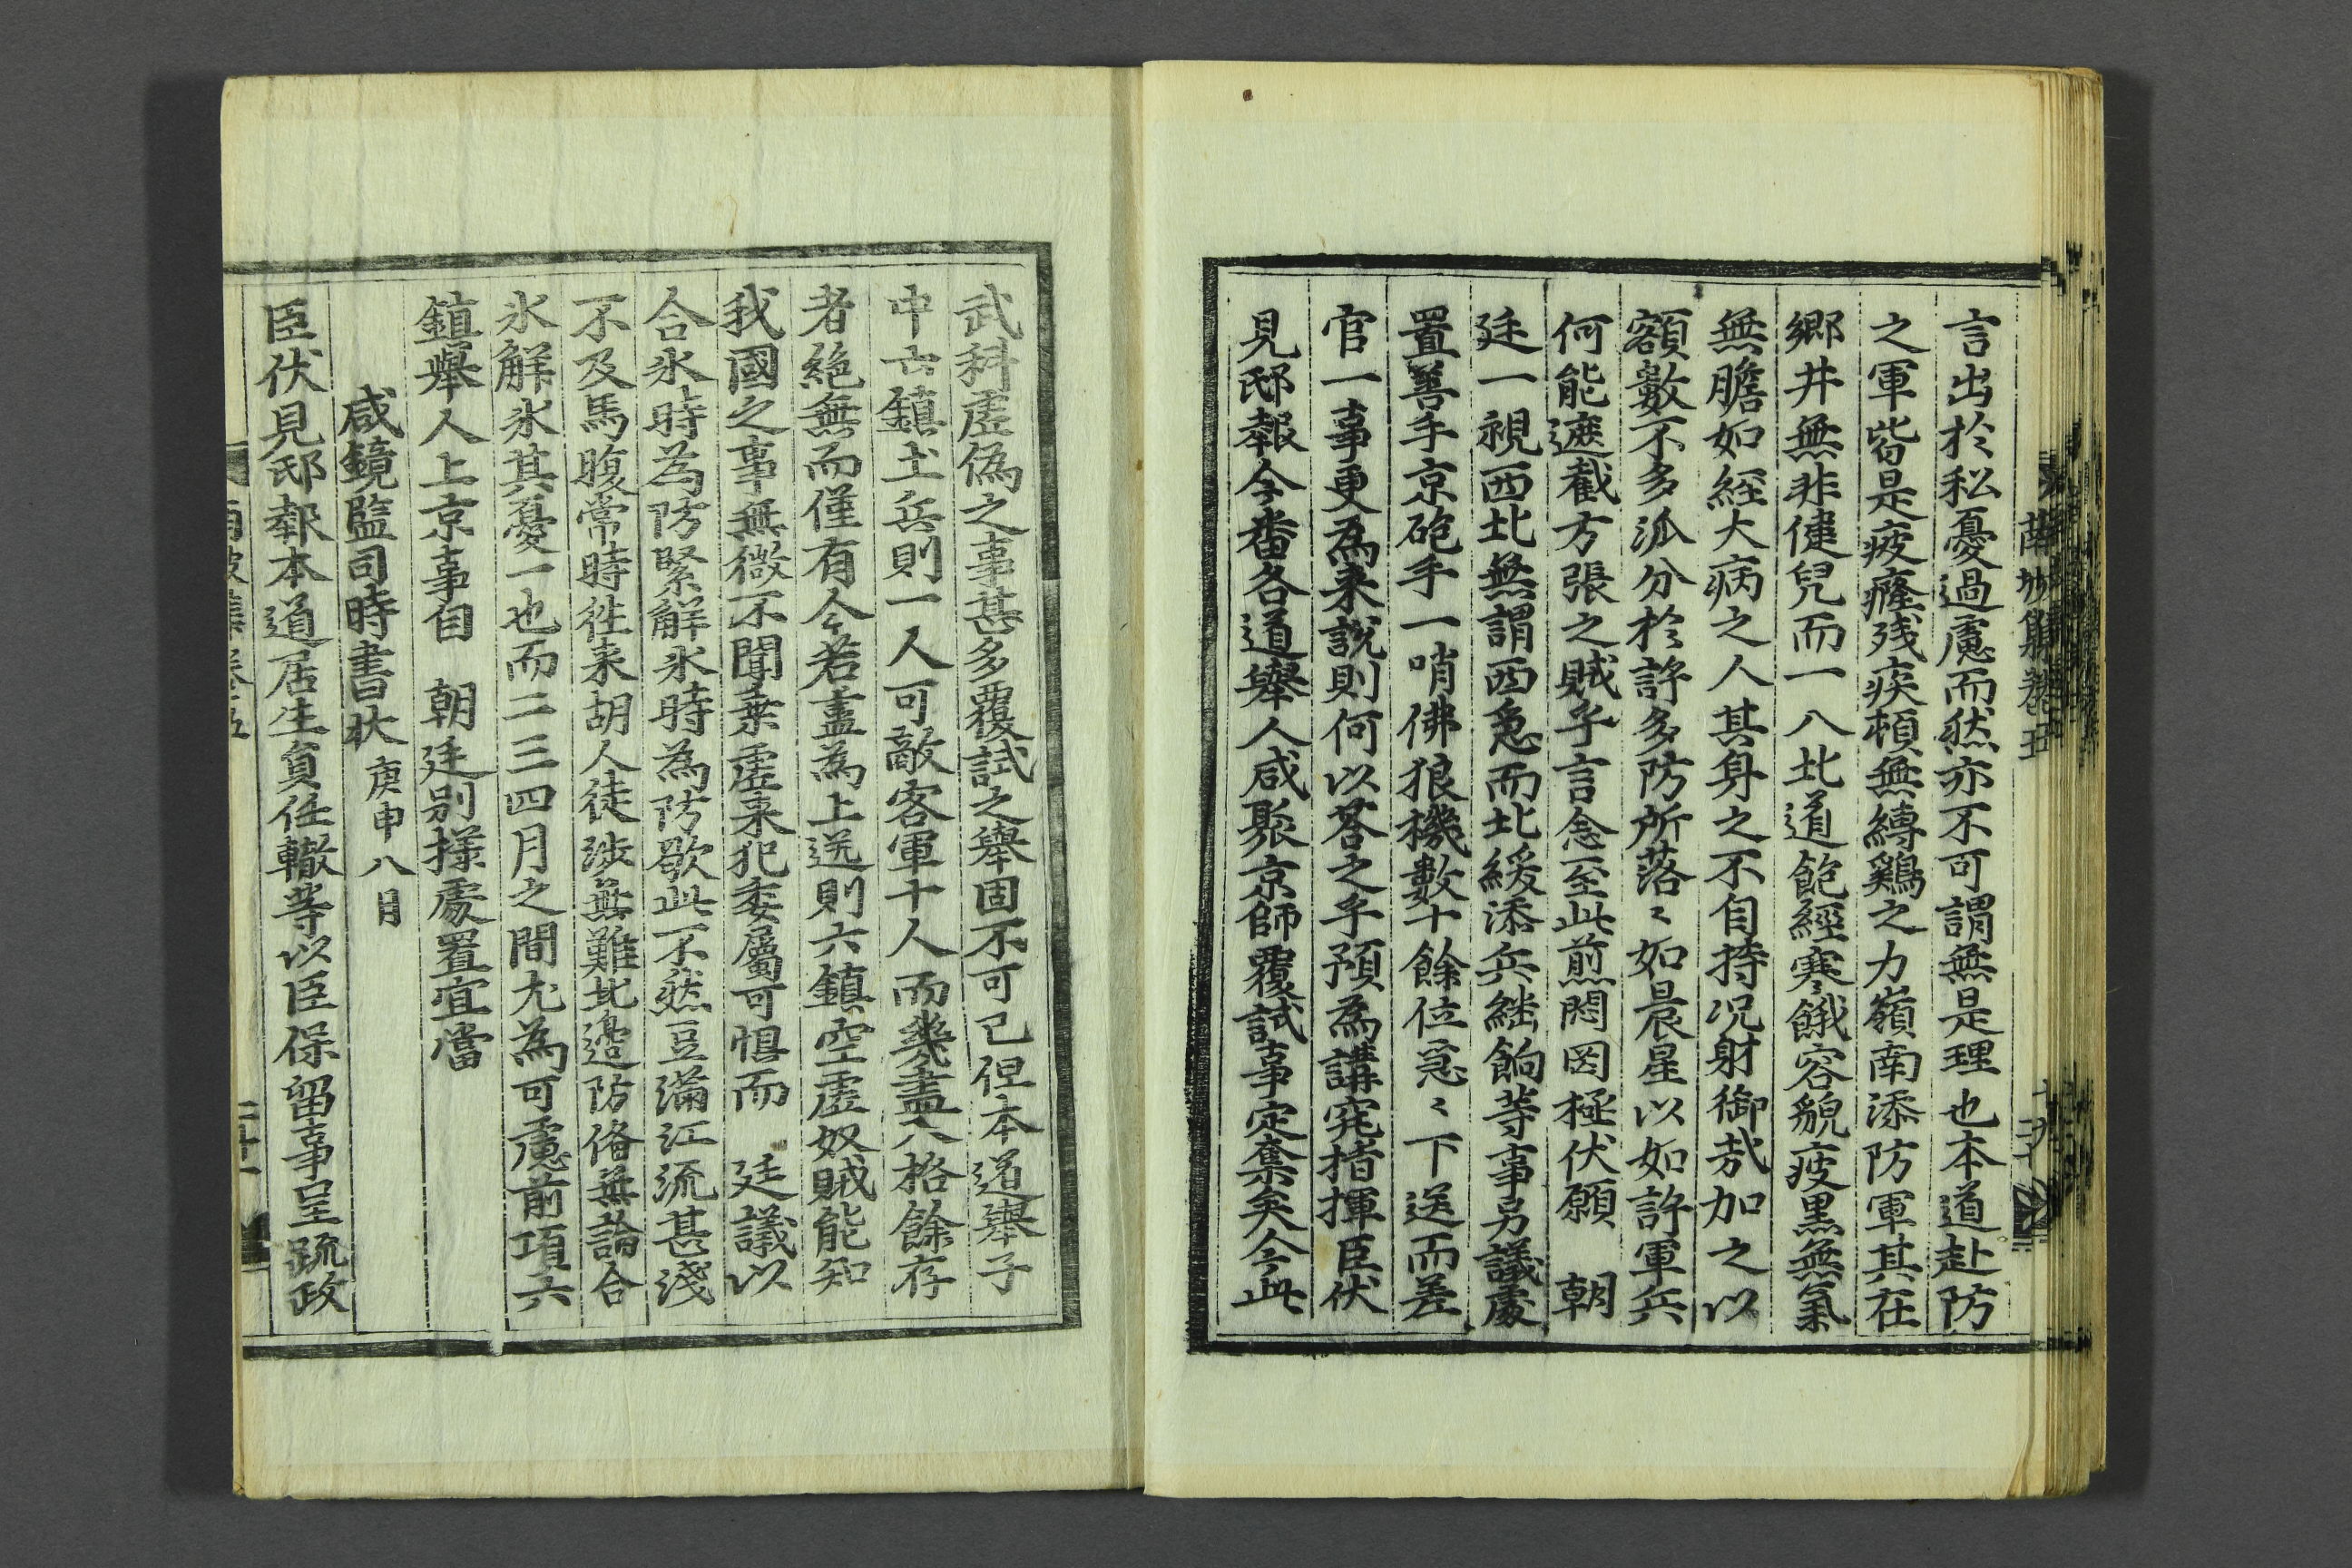 言出於私憂過慮而然亦不可謂無是理也本道赴防
之軍皆是疲癃残疾頓無縛鷄之力嶺南添防軍其在
鄉井無非健兒而一入北道飽經寒餓容貌疲黑無氣
無膽如經大病之人其身之不自持況射御哉加之以
額數不多派分於許多防所落〻如晨星以如許軍兵
何能遮截方張之賊乎言念至此煎悶罔極伏願 朝
廷一視西北無謂西急而北緩添兵繼餉等事另議處
置善手京砲手一哨佛狼機數十餘位急〻下送而差
官一事更為来說則何以答之乎預為講究指揮臣伏
見邸報今番各道舉人咸聚京師覆試事定奪矣今此
武科虛偽之事甚多覆試之舉固不可已但本道舉子
中六鎮土兵則一人可敵客軍十人而幾盡六格餘存
者絶無而僅有今若盡為上送則六鎮空虛奴賊能知
我國之事無微不聞棄虛来犯委屬可惧而 廷議以
合氷時為防緊觧氷時為防歇此不然豆滿江流甚淺
不及馬腹常時徃来胡人徒涉無難北邊防俻無論合
氷觧氷其憂一也而二三四月之間尤為可慮前項六
鎮舉人上京事自 朝廷別㨾處置宜當
咸鏡監司時書狀 庚申八月
臣伏見邸報本道居生負任轍等以臣保留事呈䟽政